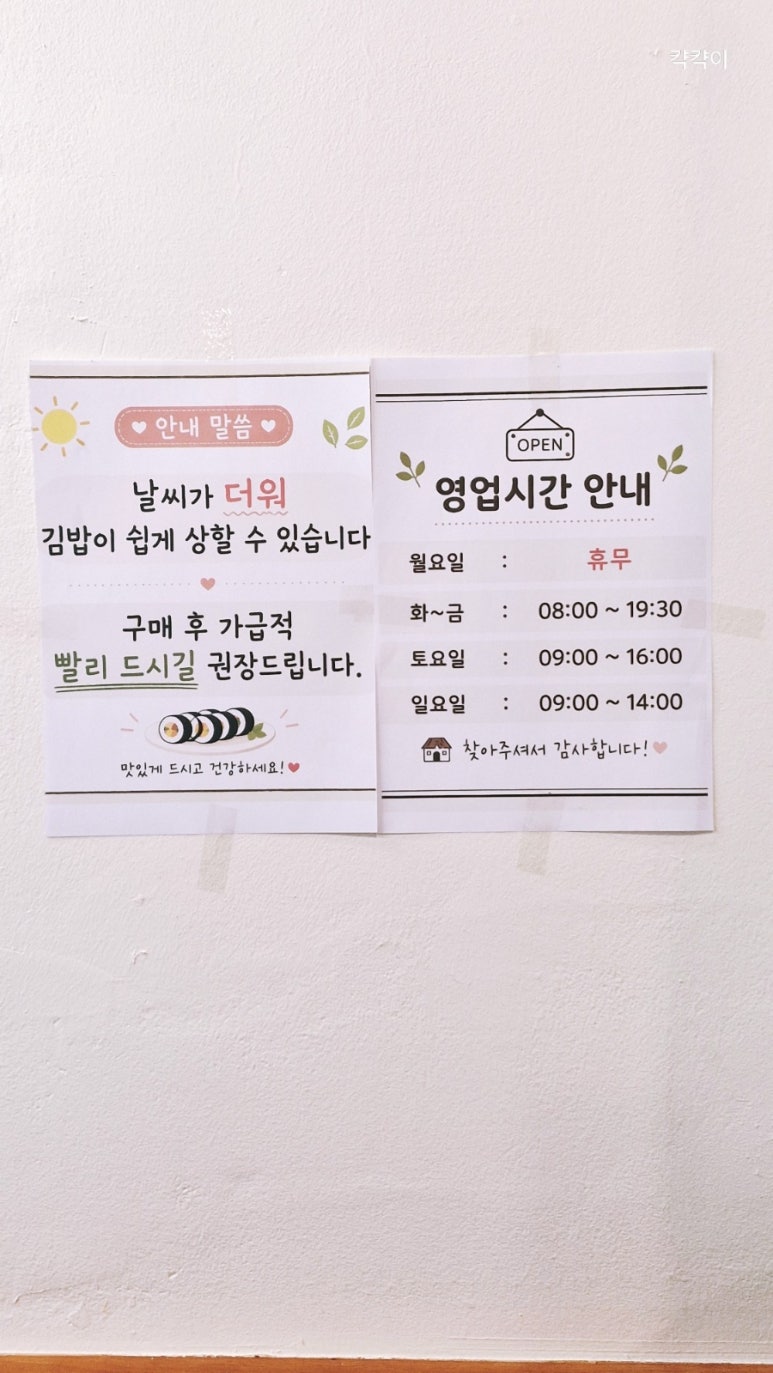 캭캭이
안내 말씀
날씨가 더워
김밥이 쉽게 상할 수 있습니다
구매 후 가급적
빨리 드시길 권장드립니다.
맛있게 드시고 건강하세요!
OPEN
영업시간 안내
월요일 : 휴무
화~금 : 08:00 ~ 19:30
토요일 : 09:00 ~ 16:00
일요일 : 09:00 ~ 14:00
찾아주셔서 감사합니다!